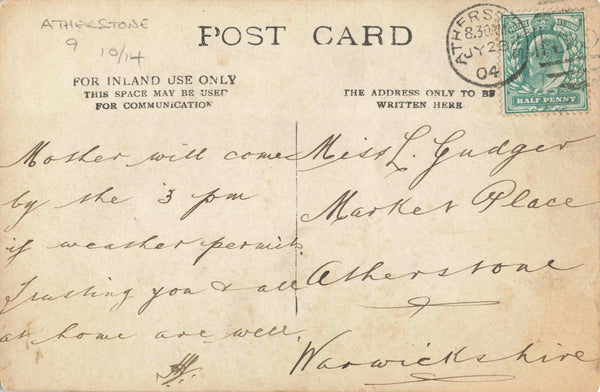 ATHERSTONE
9 10/14
POST CARD
FOR INLAND USE ONLY
THIS SPACE MAY BE USED
FOR COMMUNICATION
THE ADDRESS ONLY TO BE
WRITTEN HERE
8.30
JY 28
04
HALF PENNY
Mother will come
by the 3 pm
if weather permit.
Trusting you & all
at home are well.
Miss L. Gudger
Market Place
Atherstone
Warwickshire